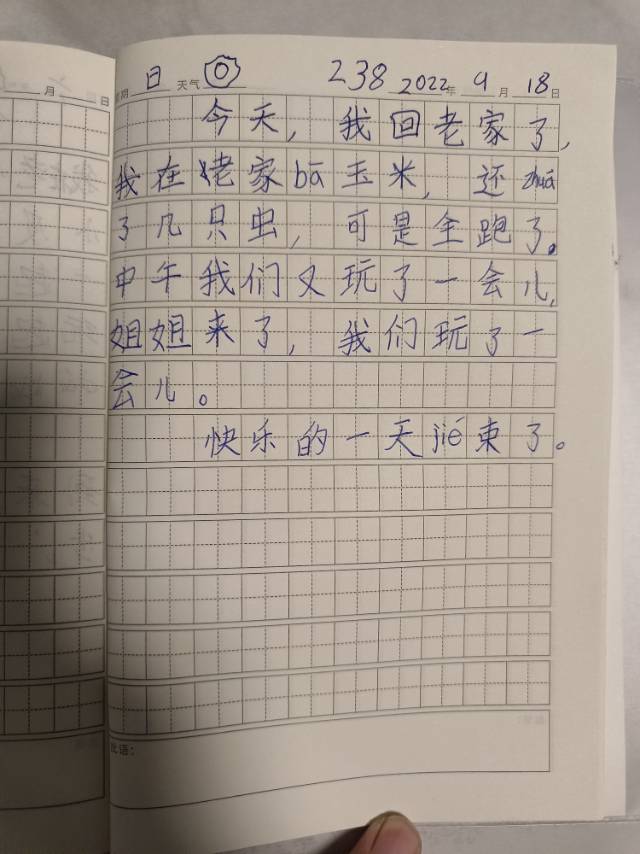 星期 日 天气 238 2022年 9月 18日
今天，我回老家了，
我在老家bā玉米，还zhuā
了几只虫，可是全跑了。
中午我们又玩了一会儿，
姐姐来了，我们玩了一
会儿。
快乐的一天jié束了。
批语：
月 日